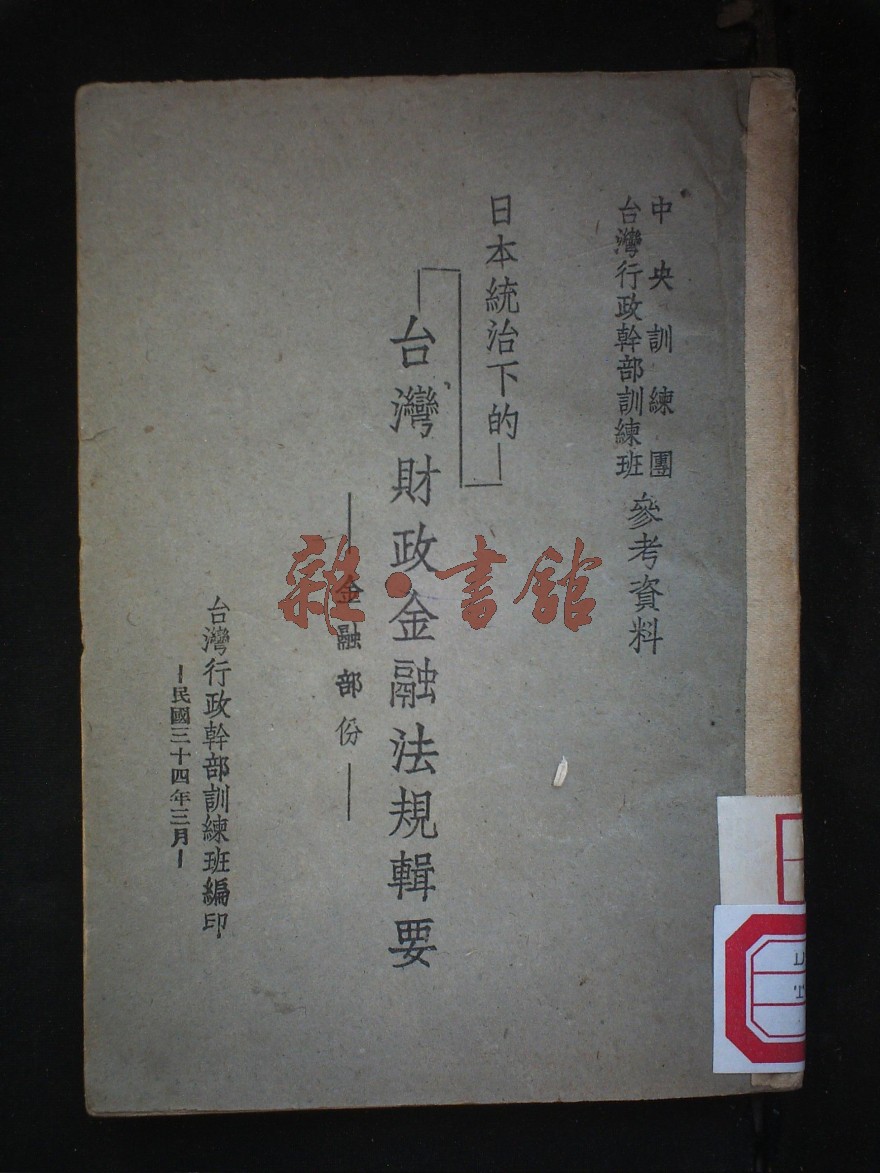 中央訓練團
台灣行政幹部訓練班
參考資料
日本統治下的
台灣財政金融法規輯要
金融部份
台灣行政幹部訓練班編印
民國三十四年三月
雜·書館